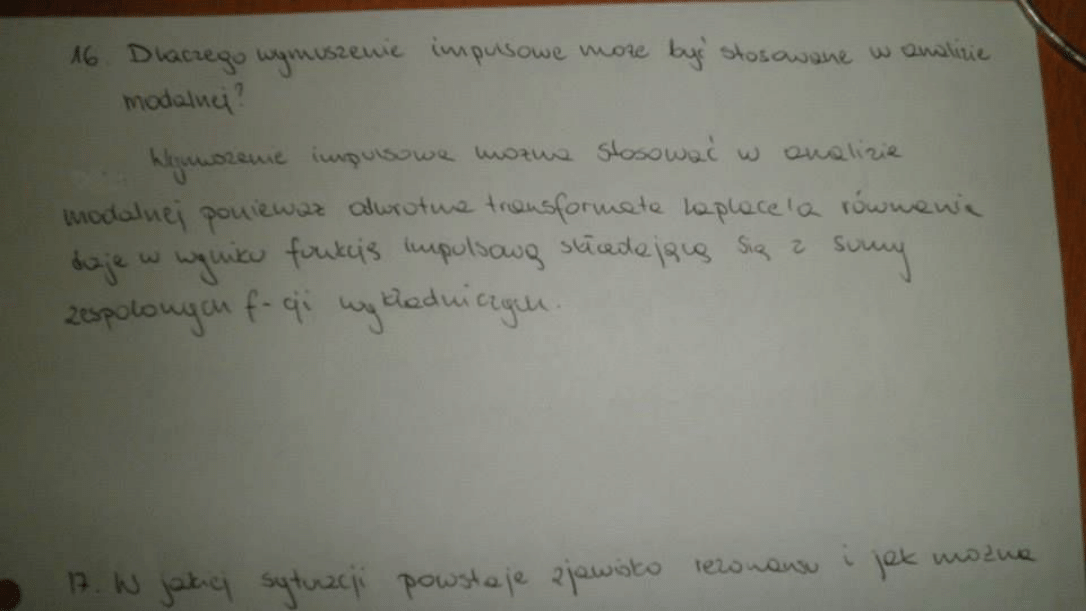 16. Dlaczego wymuszenie impulsowe może być stosowane w analizie
modalnej?
Wymuszenie impulsowe można stosować w analizie
modalnej ponieważ odwrotna transformata Laplace'a równania
daje w wyniku funkcję impulsową składającą się z sumy
zespolonych f-cji wykładniczych.
17. W jakiej sytuacji powstaje zjawisko rezonansu i jak można